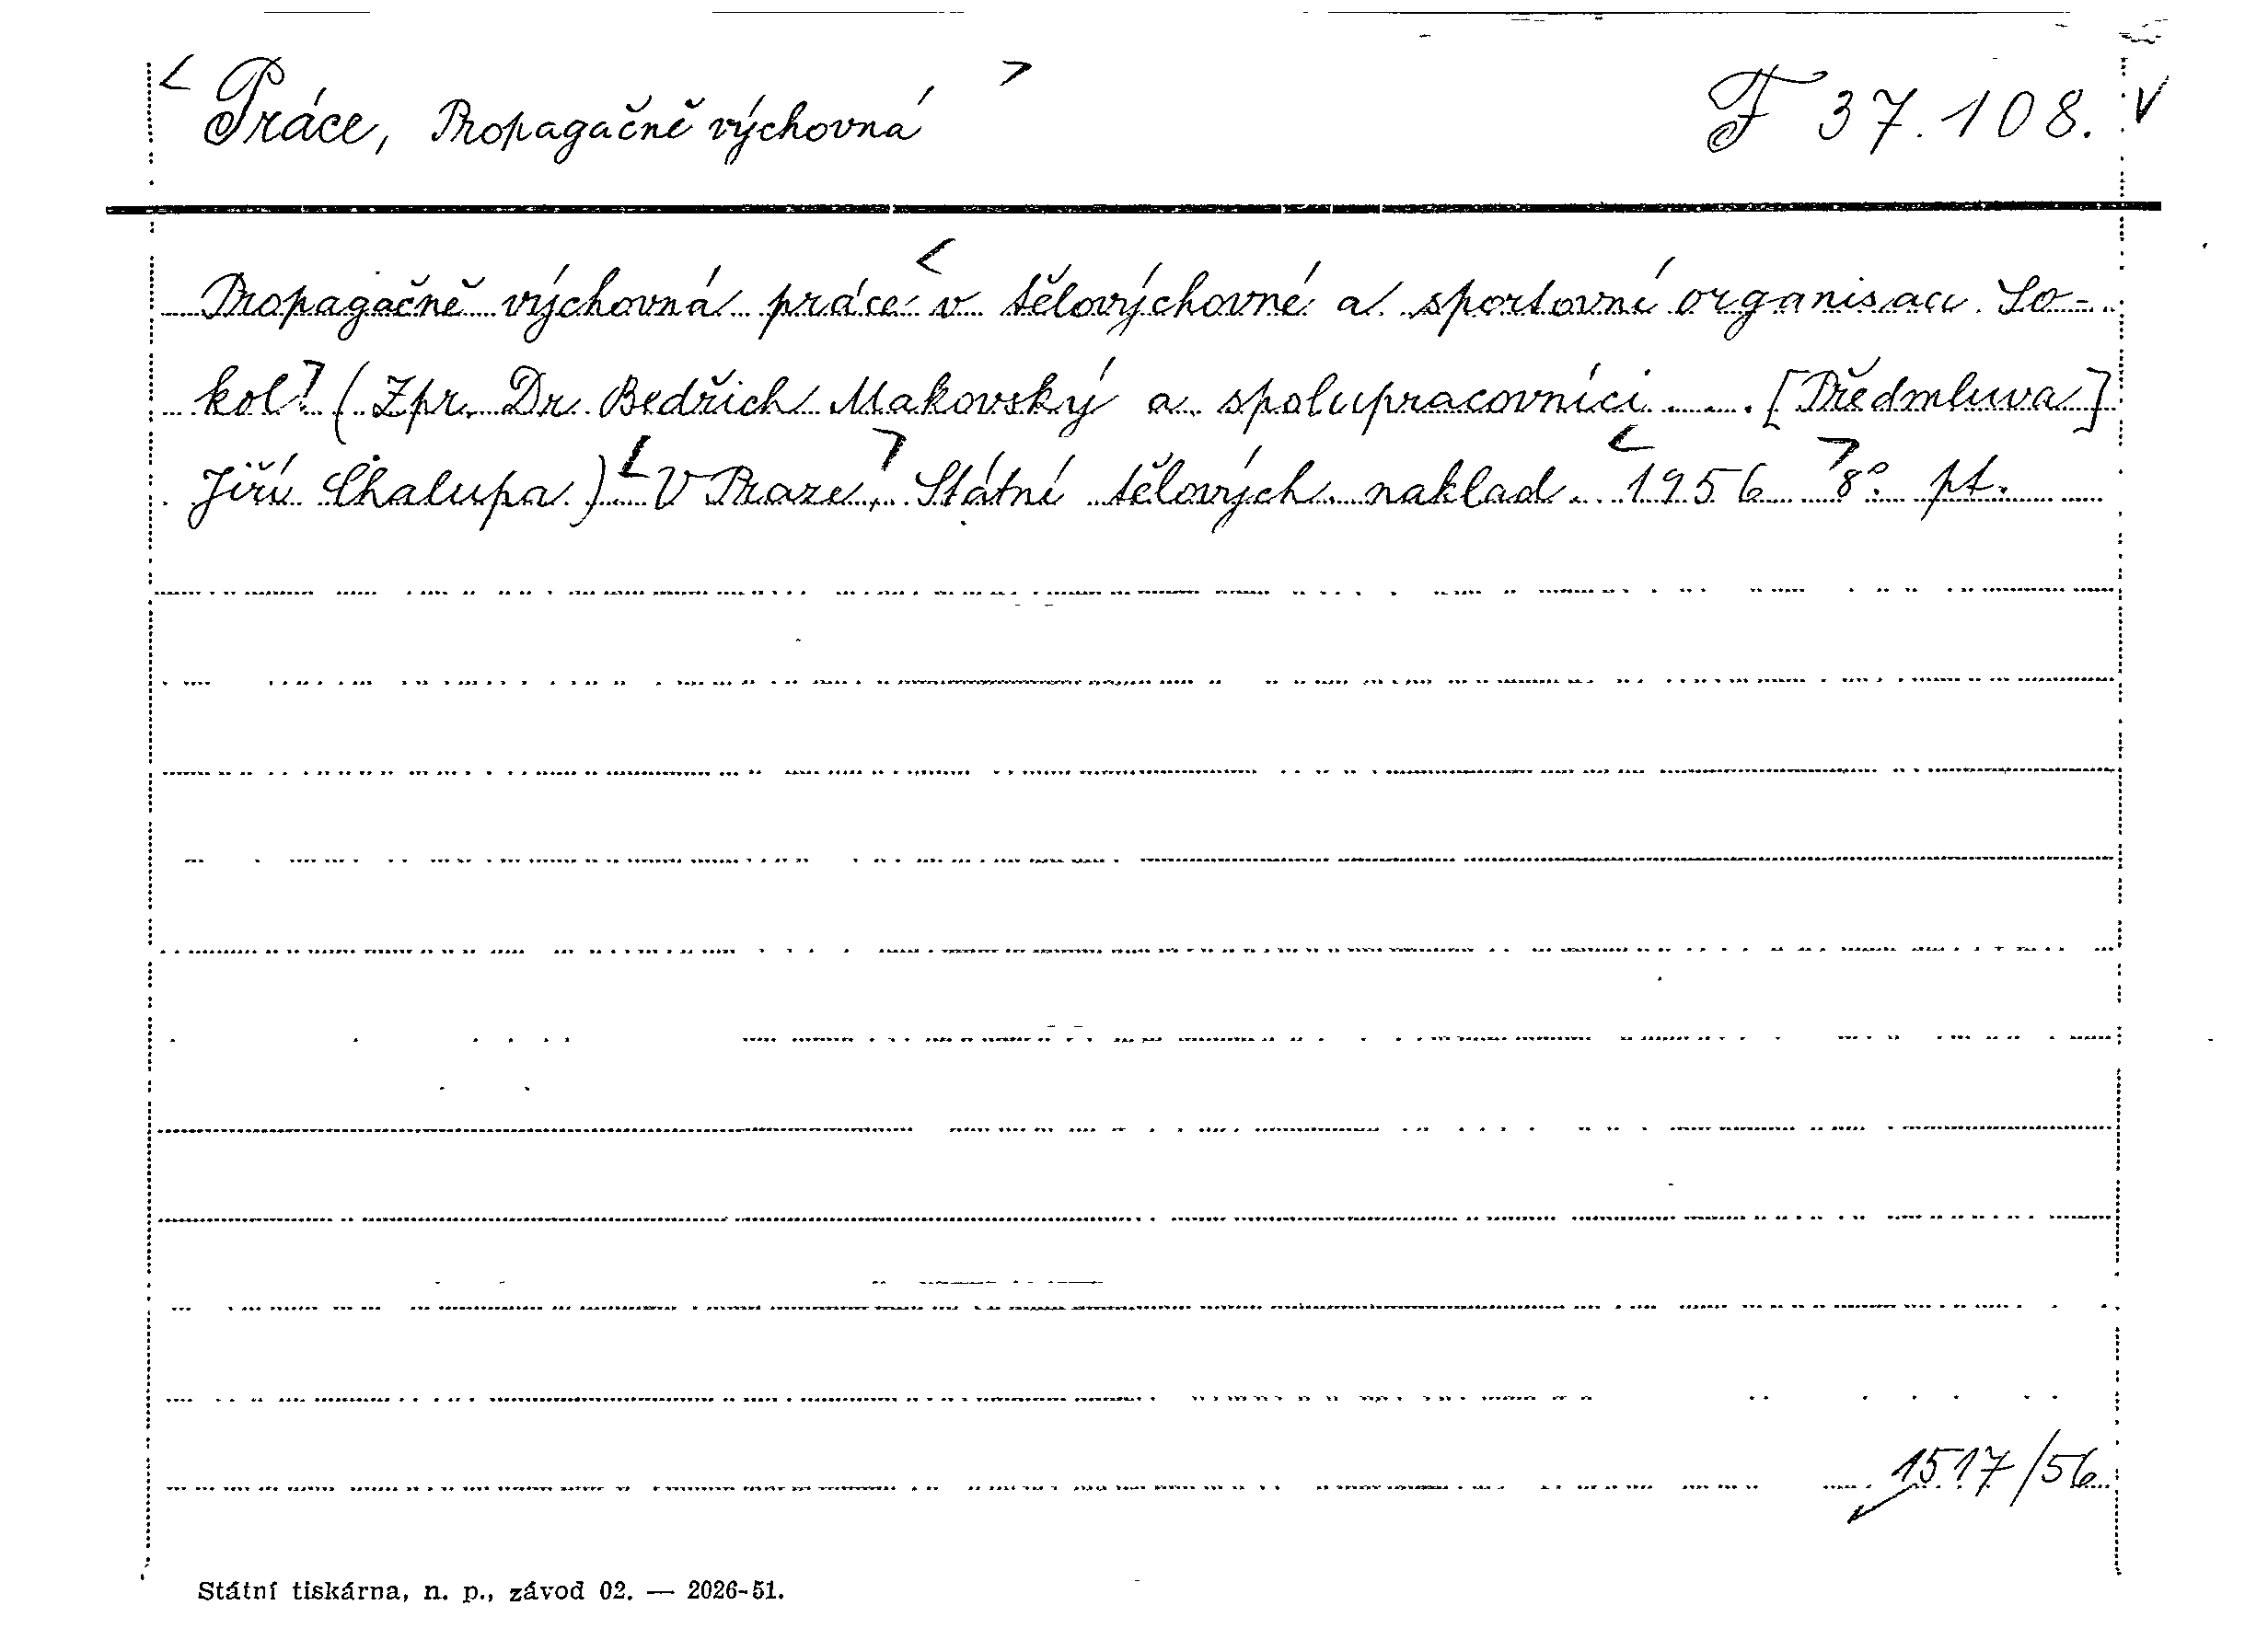 < Práce, Propagačně výchovná > F 37.108. V
Propagačně výchovná práce < v tělovýchovné a sportovní organisaci So-
kol > (Zpr. Dr. Bedřich Makovský a spolupracovníci ... [Předmluva]
Jiří Chalupa.) < V Praze, > Státní tělových. naklad. < 1956 > 8° pt.
1517/56
Státní tiskárna, n. p., závod 02. — 2026-51.